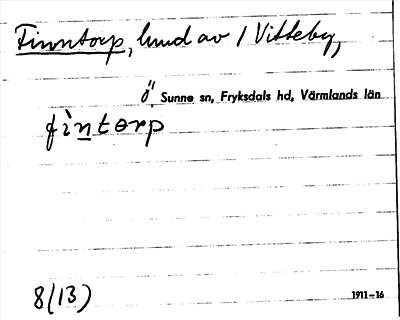 Finntorp, lund av 1 Vitteby,
Ö. Sunne sn, Fryksdals hd, Värmlands län
fìntorp
8(13)
1911–16